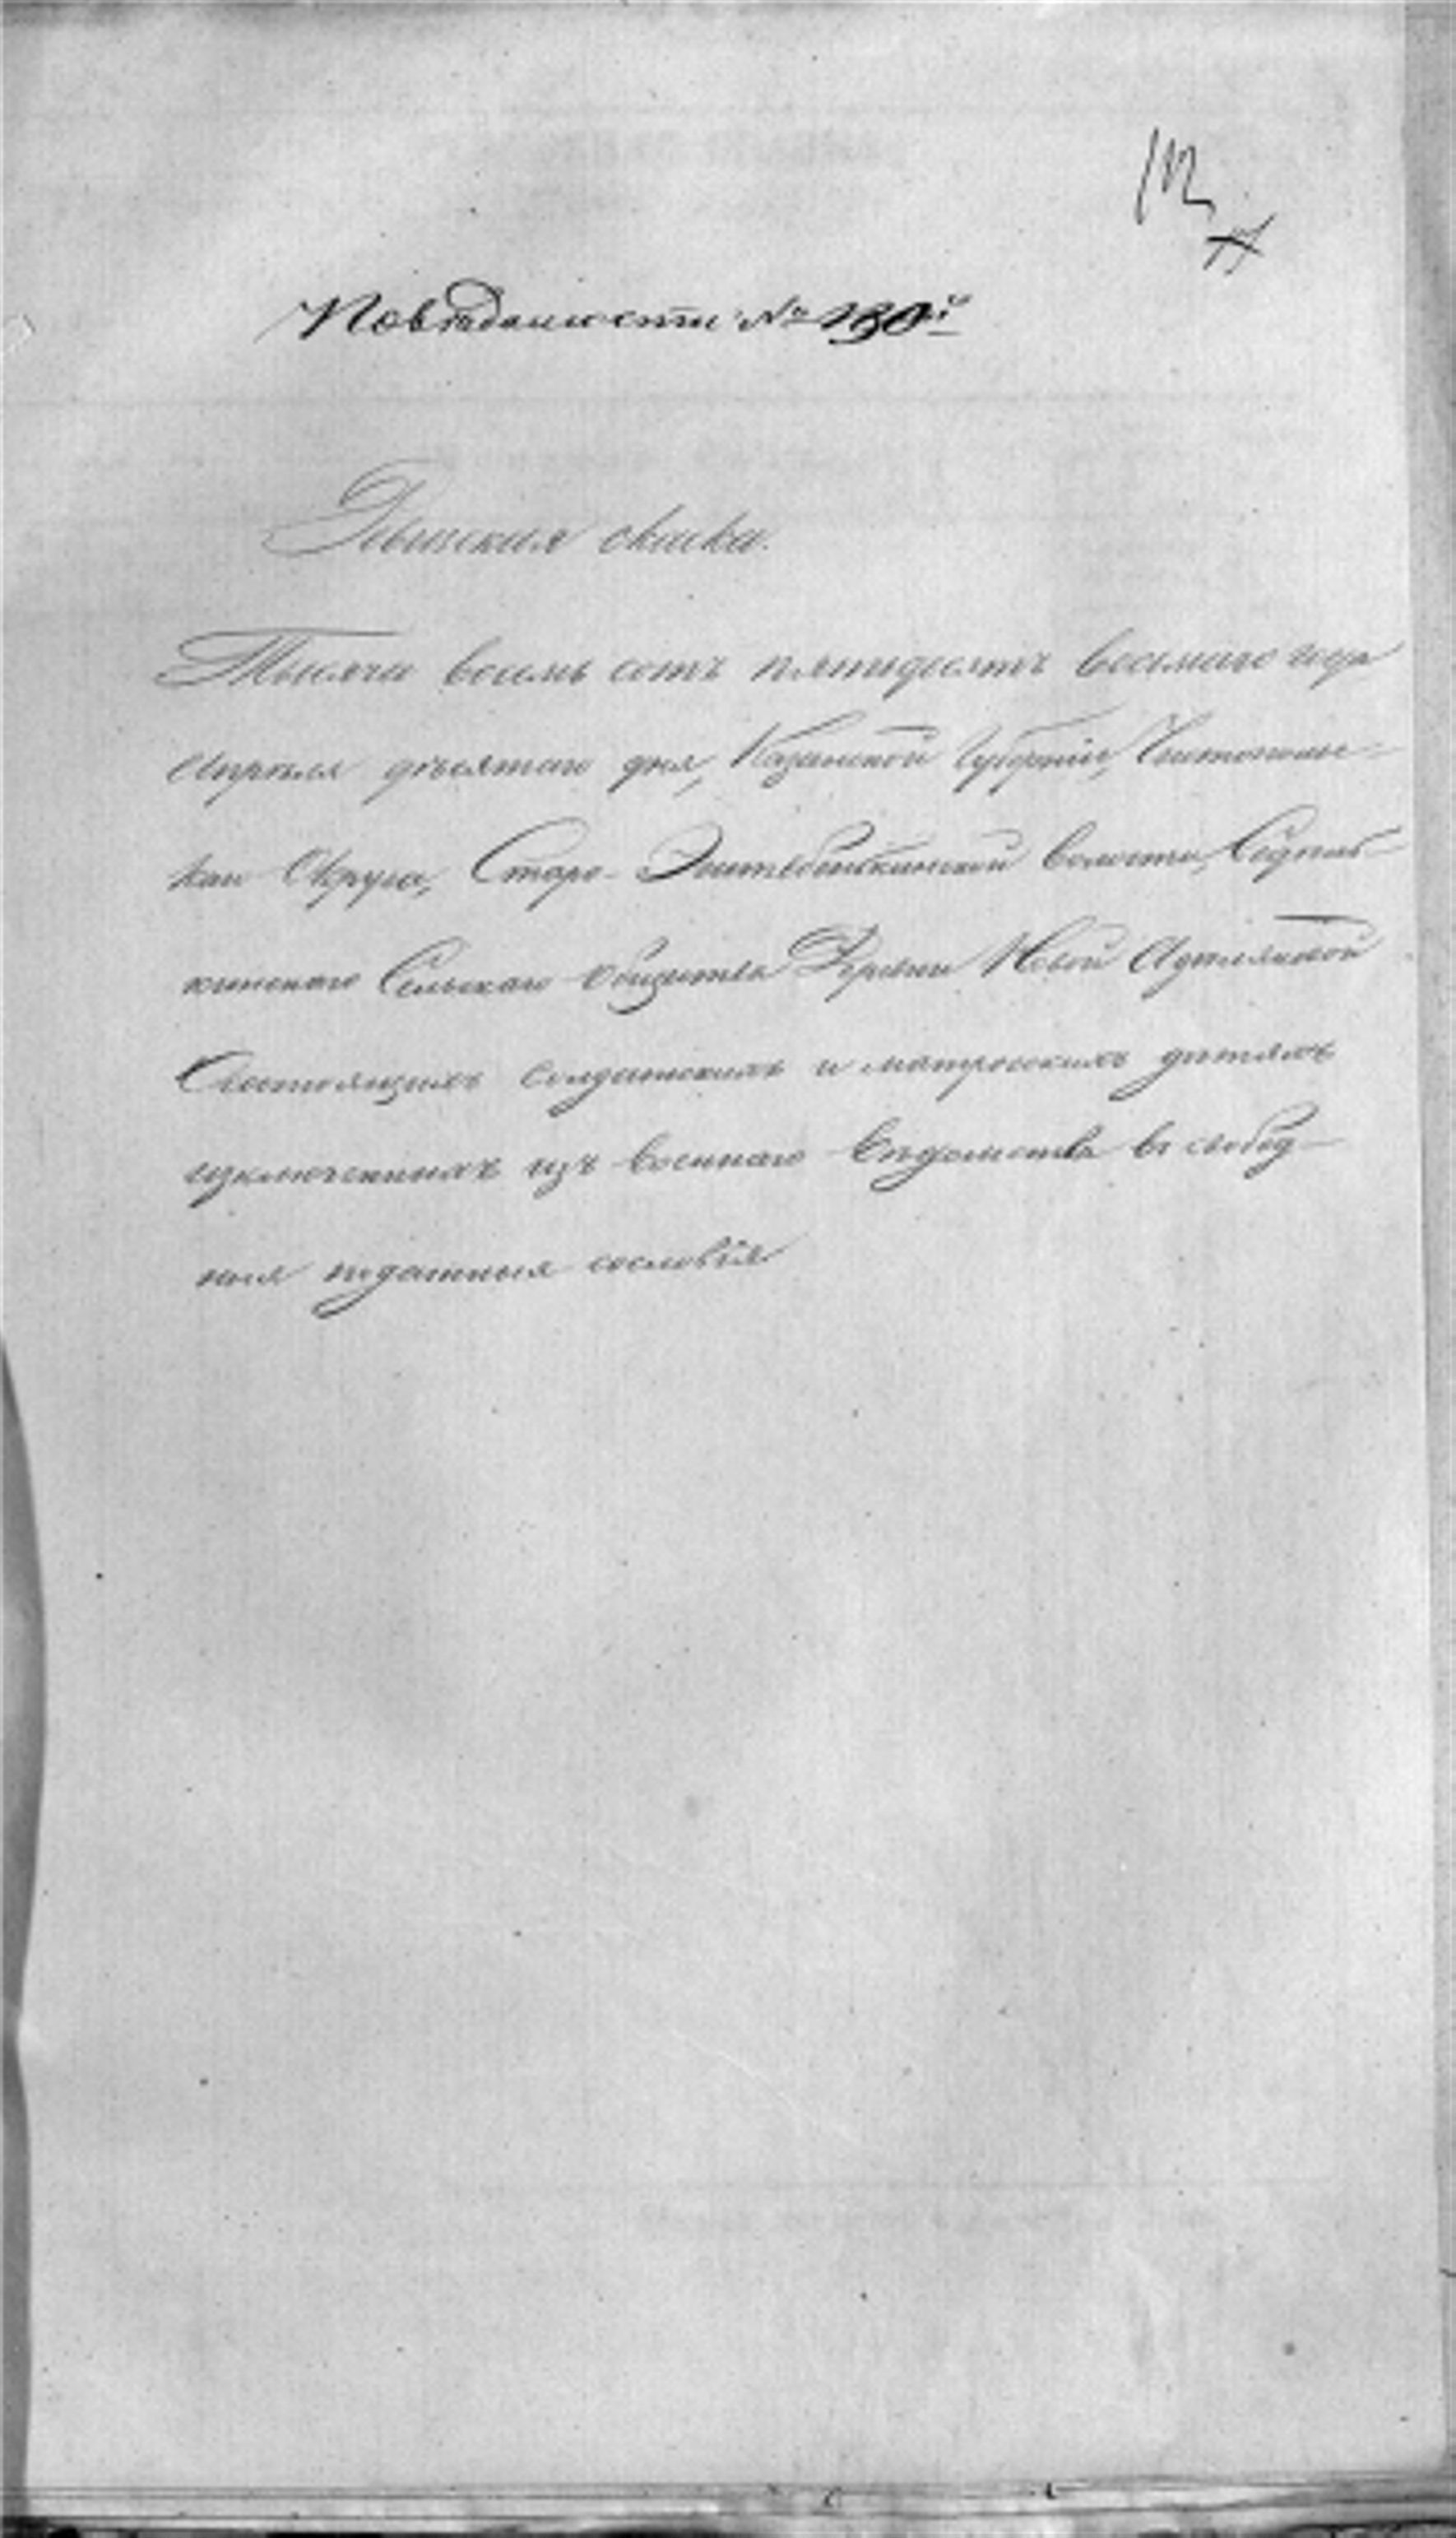 112
По вѣдомости № 130й
Ревизская скаска.
Тысяча восемь сотъ пятидесятъ восьмаго года
апреля дѣсятаго дня, Казанской Губерніи, Чистопольс-
каго Округа, Старо-
кинскаго Сельскаго общества Деревни Новой Адамсковой
Состоящимъ солдатскимъ и матросскимъ дѣтямъ
изключеннымъ изъ военнаго вѣдомства въ свобод-
ныя податныя сословія